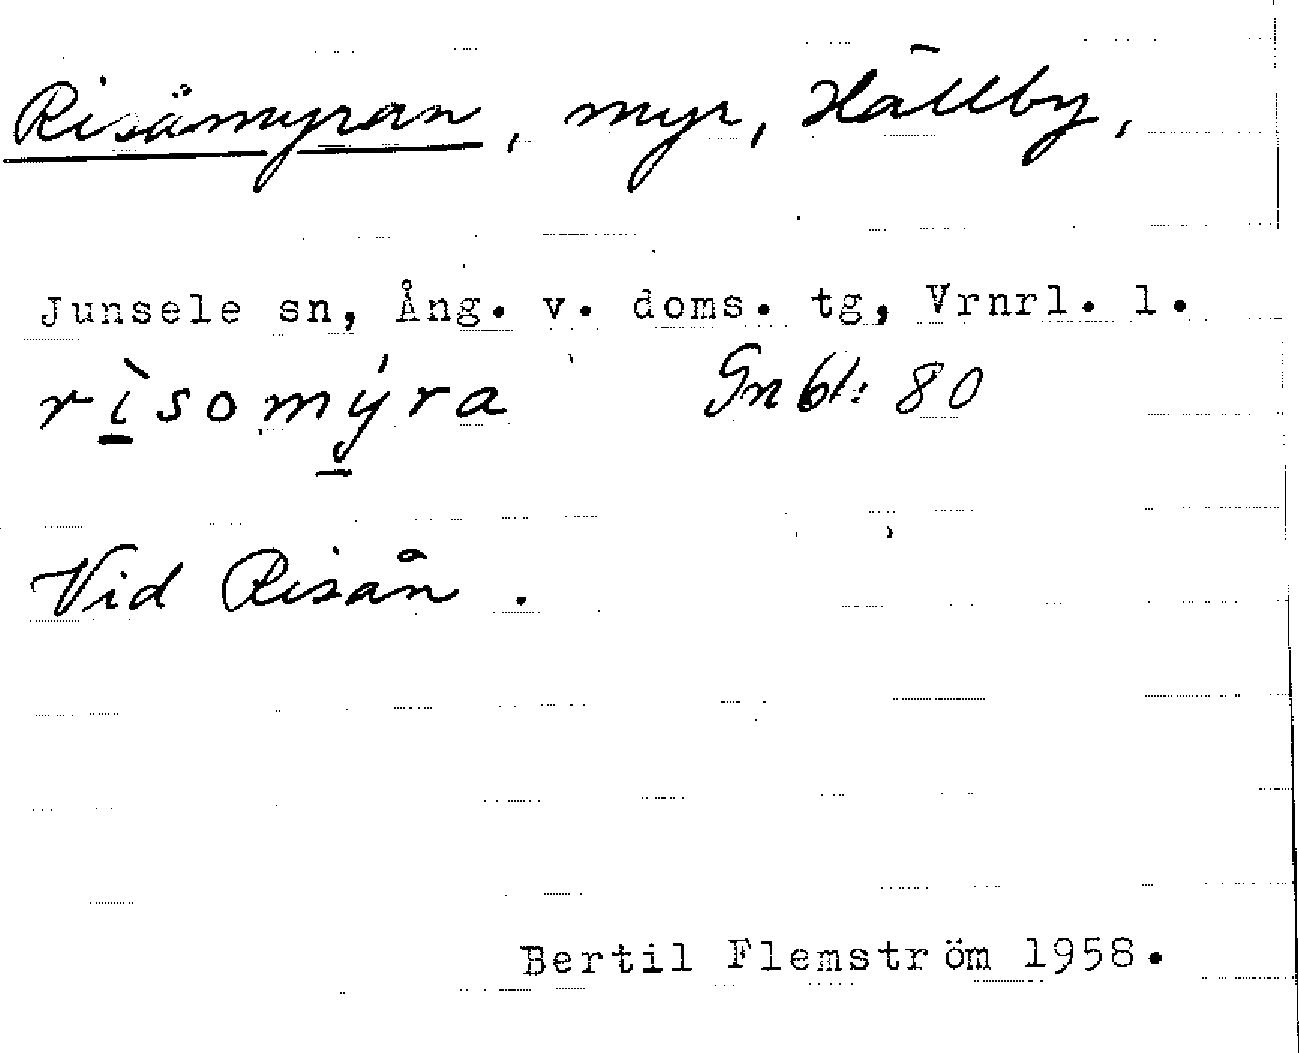 Risåmyran, myr, Hällby,
Junsele sn, Ång. v. doms. tg, Vrnrl. l.
rìsomýra Gnbl: 80
Vid Risån.
Bertil Flemström 1958.